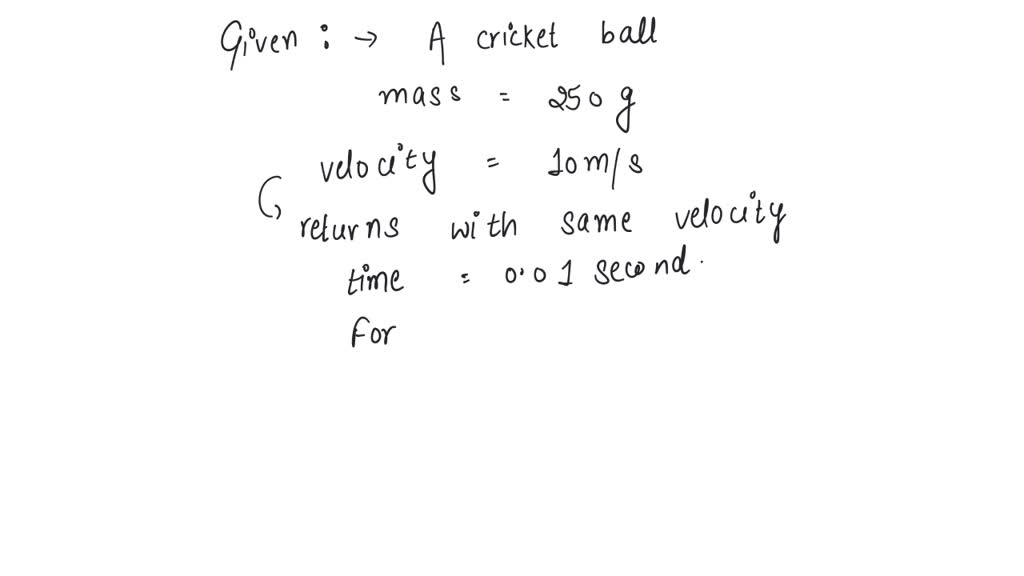 Given : → A cricket ball
mass = 250 g
velocity = 10 m/s
returns with same velocity
time = 0.01 second.
For